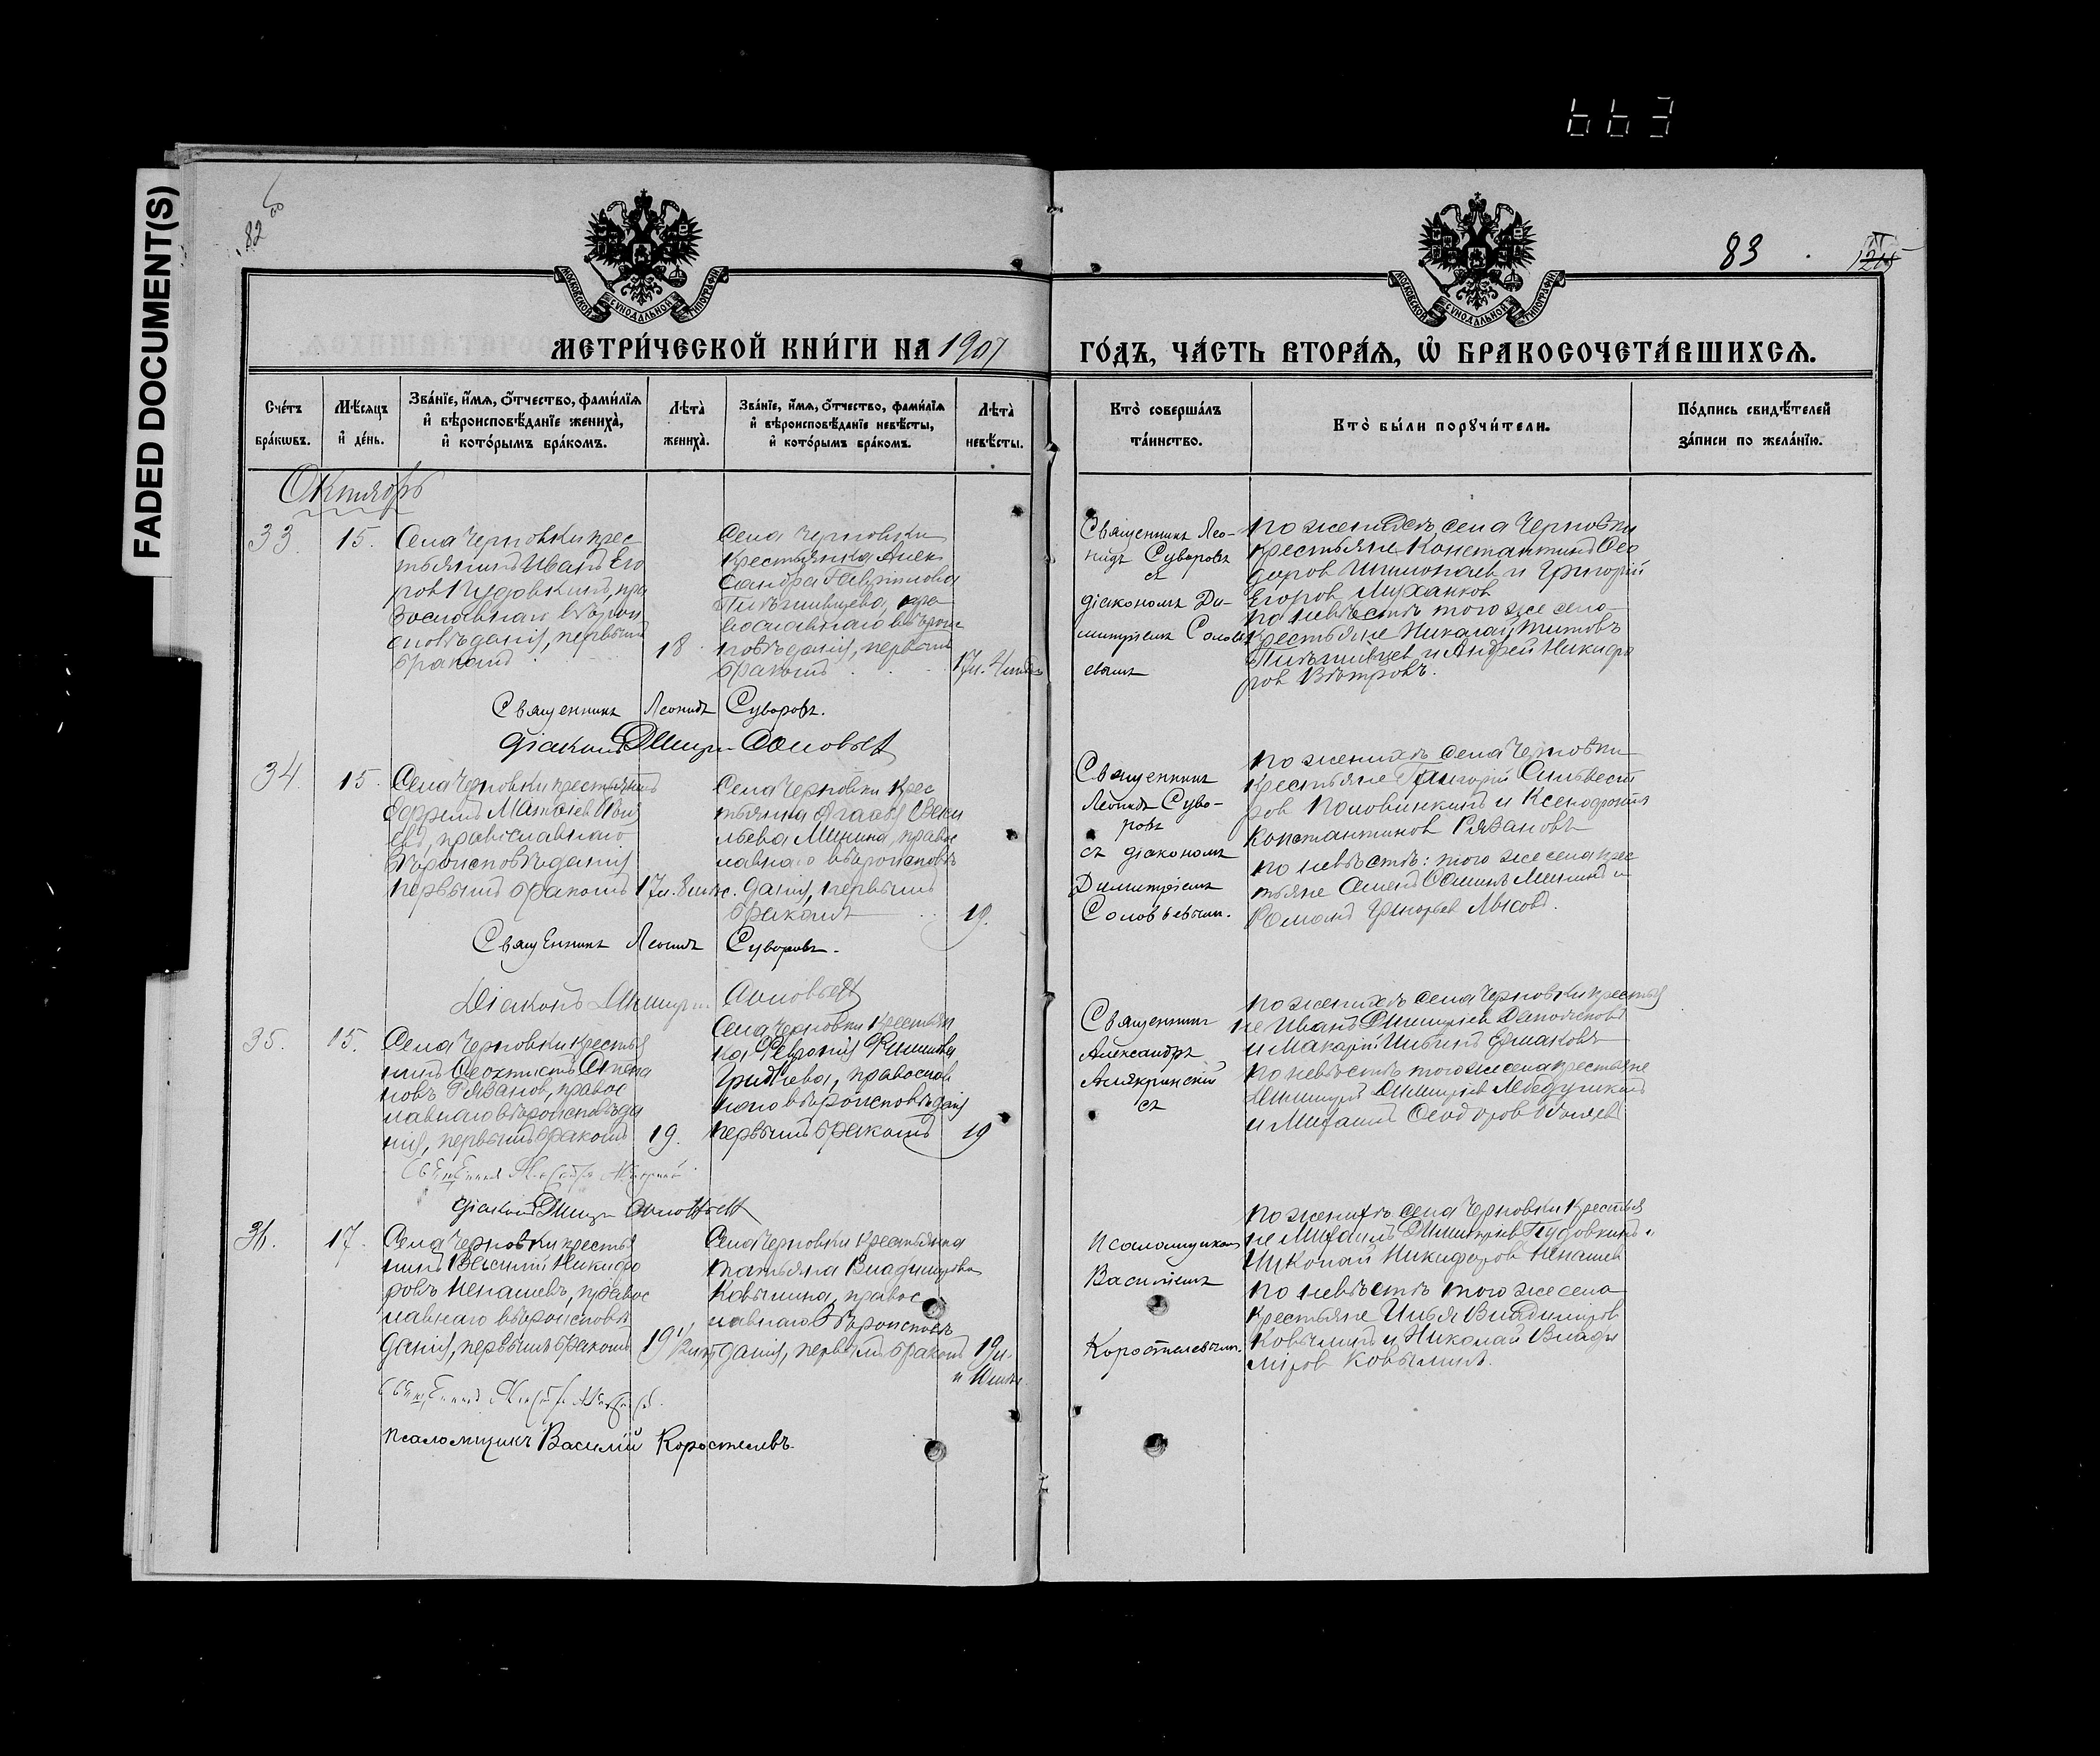 FADED DOCUMENT(S)
663
82 об
83
МОСКОВСКОЙ СѴНОДАЛЬНОЙ ТИПОГРАФІИ
МОСКОВСКОЙ СѴНОДАЛЬНОЙ ТИПОГРАФІИ
МЕТРИ́ЧЕСКОЙ КНИ́ГИ НА 1907
ГО́ДЪ, ЧА́СТЬ ВТОРА́Ѧ, Ѡ҆ БРАКОСОЧЕТА́ВШИХСѦ.
Сче́тъ
бра́кѡвъ.
Мѣ́сѧцъ
и҆ де́нь.
Зва́нїе, и҆́мѧ, ѻ҆́тчество, фами́лїѧ
и҆ вѣроисповѣ́данїе жениха̀,
и҆ кото́рымъ бра́комъ.
Лѣ́та̀
жениха̀.
Зва́нїе, и҆́мѧ, ѻ҆́тчество, фами́лїѧ
и҆ вѣроисповѣ́данїе невѣ́сты,
и҆ кото́рымъ бра́комъ.
Лѣ́та̀
невѣ́сты.
Кто̀ соверша́лъ
та́инство.
Кто̀ бы́ли порꙋчи́тели.
По́дпись свидѣ́телей
за́писи по жела́нїю.
Октябрь
33.
15.
Села Черновки крес
тьянинъ Иванъ Его
ровъ Пудовкинъ, пра
вославнаго вѣрои
сповѣданія, первымъ
бракомъ
18
Села Черновки
крестьянка Алек
сандра Гаврилова
православнаго вѣрои
повѣданія, первымъ
бракомъ
17л.
Священникъ Лео-
нидъ Суворовъ
съ
діакономъ Ди-
митріемъ Солов
евымъ
По женихѣ села Черновки
крестьяне Константинъ Ѳео
доров и Григорій
Егоров
по невѣстѣ того же села
крестьяне Николай Титовъ
и Андрей Никифо
ров Вѣтровъ.
Священникъ Леонидъ Суворовъ.
Діаконъ Димитр Соловьевъ
34.
15.
Села Черновки крестьянинъ
православнаго
Вѣроисповѣданія
первымъ бракомъ
17л. 8 мѣс.
Села Черновки крес
тьянка
Минина, правос
лавнаго вѣроисповѣ
данія, первымъ
бракомъ
19.
Священникъ
Леонидъ Суво-
ровъ
съ діакономъ
Димитріемъ
Соловьевымъ.
По женихѣ села Черновки
крестьяне Григорій Сильвест
ров Половинкинъ и Ксенофонтъ
Константинов Рязановъ
по невѣстѣ: того же села крес
тьяне Мининъ и
Романъ Григорьев Лысовъ.
Священникъ Леонидъ Суворовъ.
Діаконъ Димитр Соловьевъ
35.
15.
Села Черновки крестья
нинъ Ѳеоктистъ Степа
новъ Рязанов, правос
лавнаго вѣроисповѣда
нія, первымъ бракомъ
19.
Села Черновки крестьян
ка Февронія
православ
наго вѣроисповѣданія
первымъ бракомъ
19
Священникъ
Александръ
съ
По женихѣ села Черновки крестья
не Иванъ Димитріев
и Макарій Ильинъ Ермаковъ
по невѣстѣ того же села крестьяне
Димитрій Димитріев
и Михаилъ Ѳеодоров
Діаконъ Димитр Соловьевъ
36.
17.
Села Черновки крестья
нинъ Василій Никифо
ровъ Ненашевъ, правос
лавнаго вѣроисповѣ
данія, первымъ бракомъ
19 1/2
Села Черновки крестьянка
Татьяна Владимірова
Ковылина, правос
лавнаго вѣроисповѣ
данія, первымъ бракомъ
19л.
Псаломщикомъ
Василіемъ
Коростелевымъ.
По женихѣ села Черновки крестья
не Михаилъ Димитріев Пудовкинъ и
Николай Никифоров Ненашев
по невѣстѣ того же села
крестьяне Илья Владиміров
Ковылинъ и Николай Влади
міров Ковылинъ.
Псаломщикъ Василій Коростелевъ.